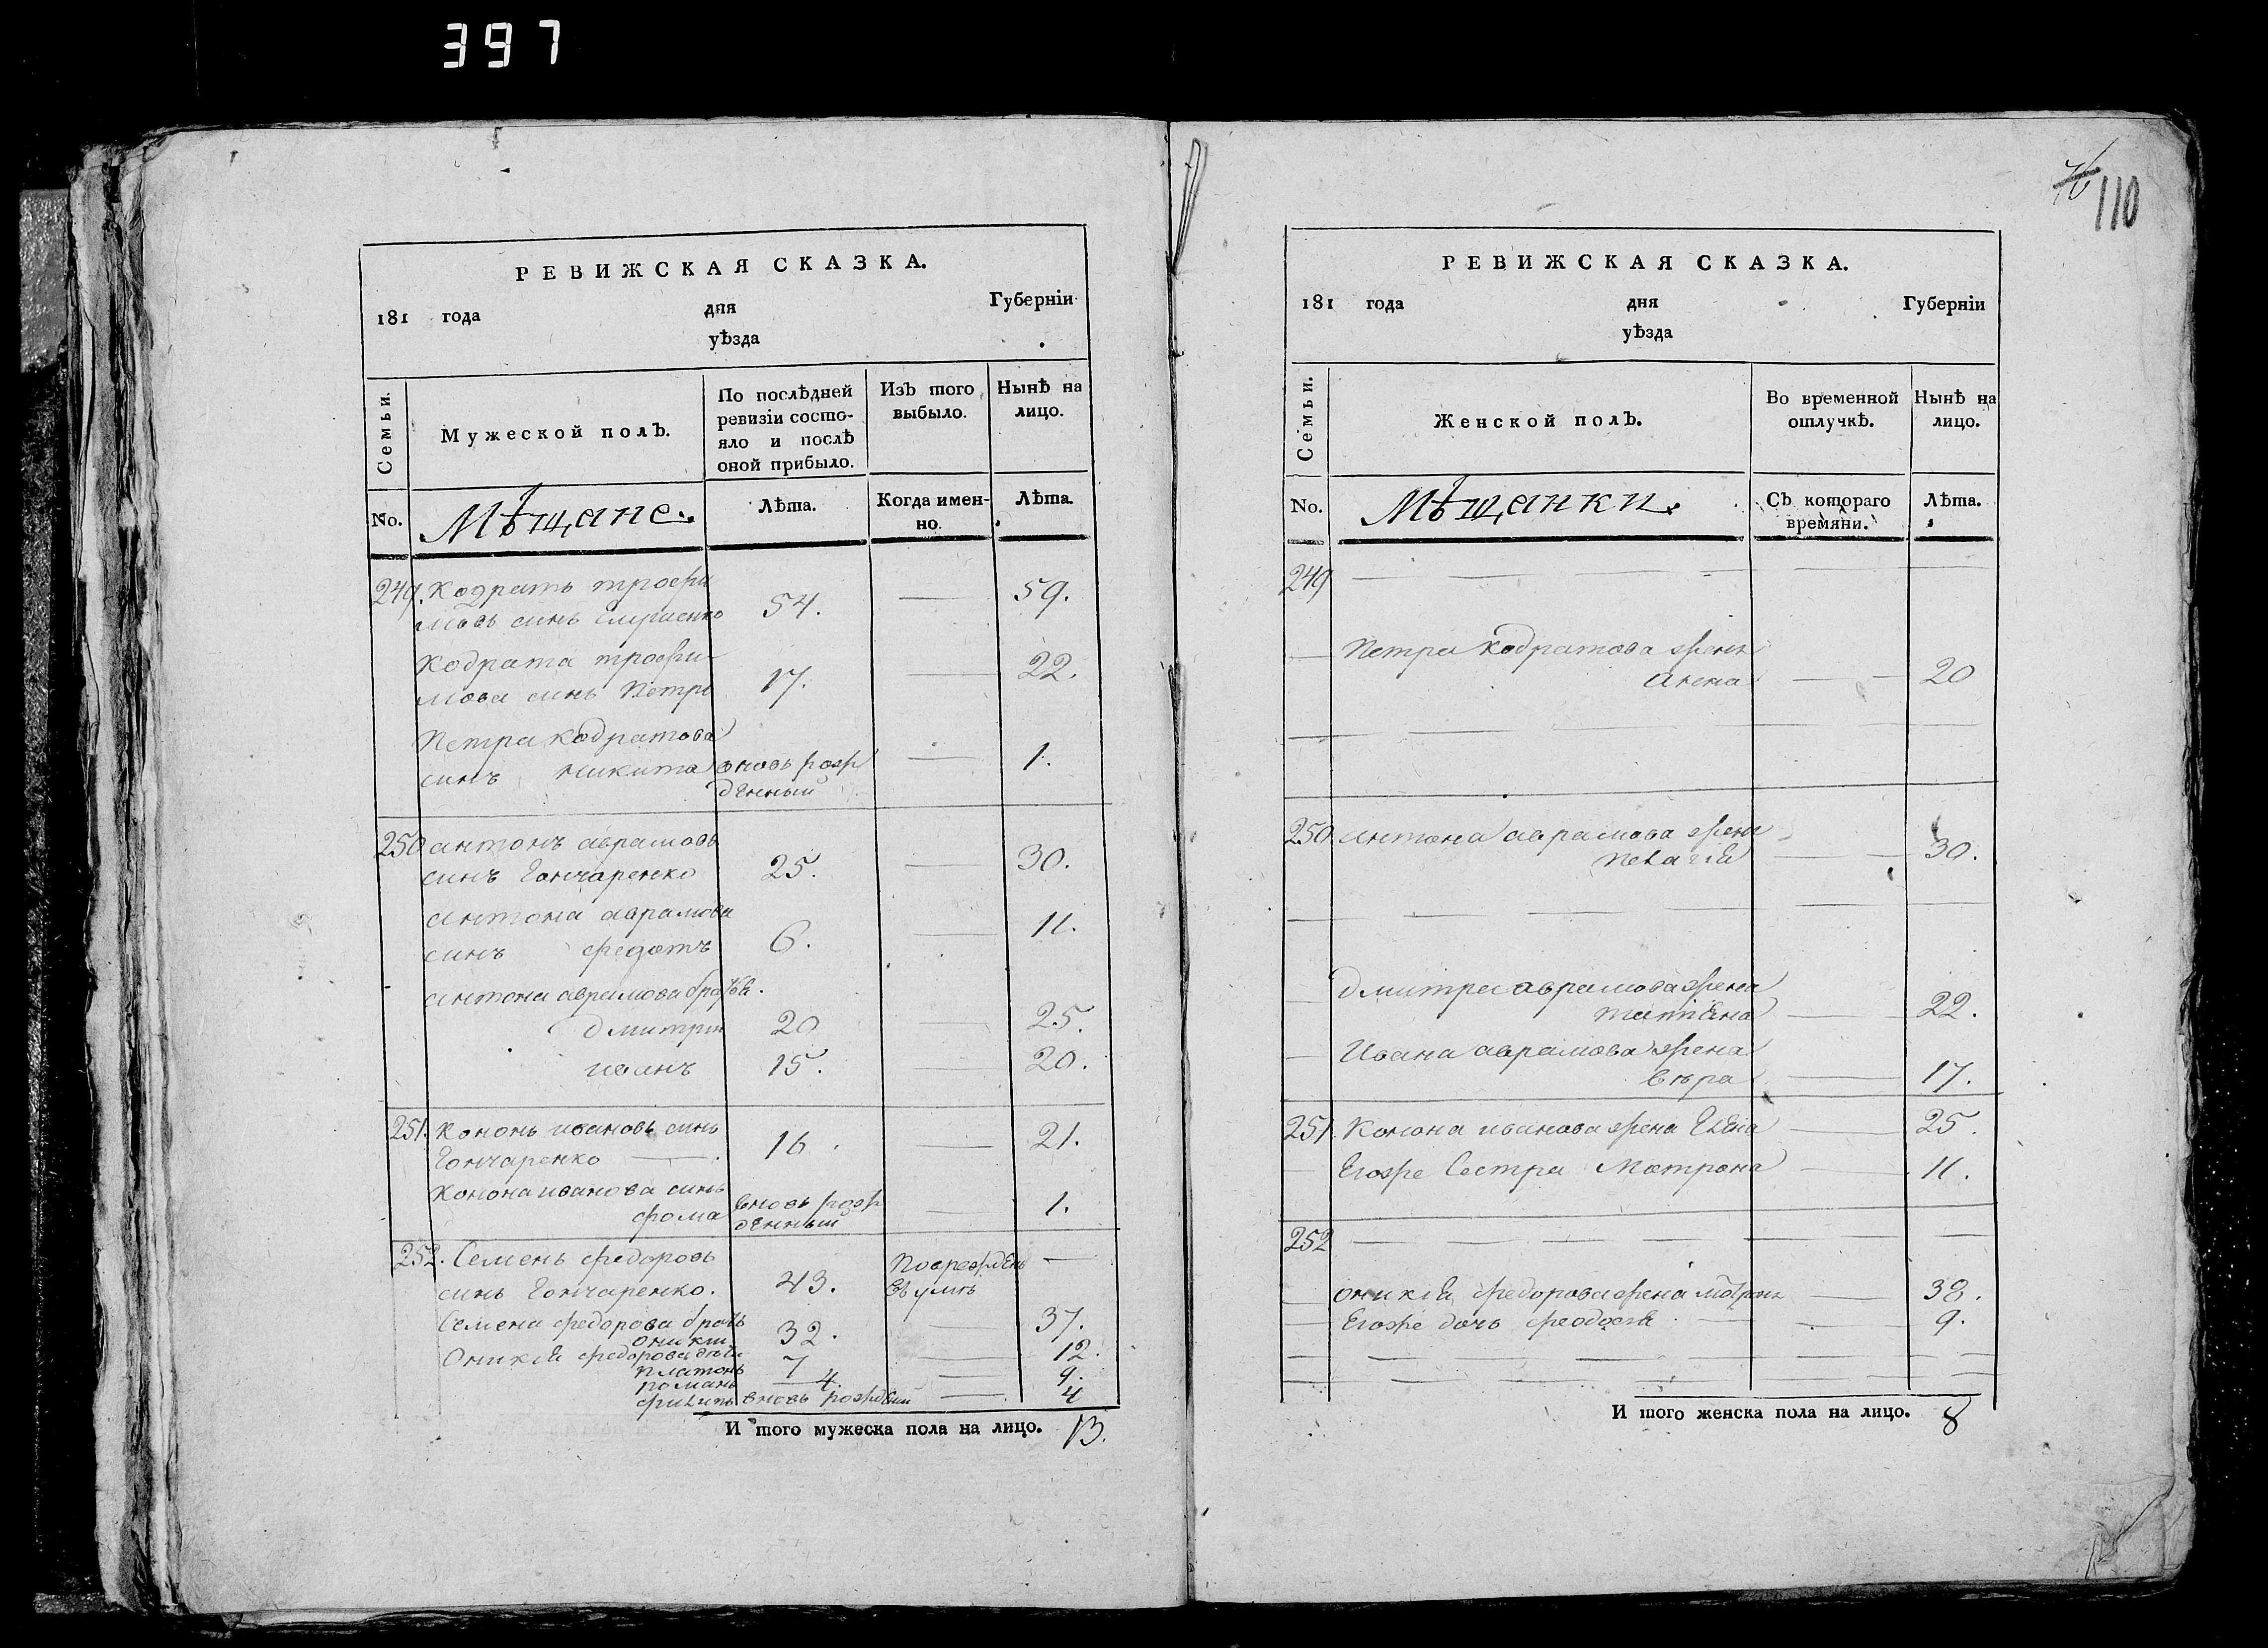 397
РЕВИЖСКАЯ СКАЗКА.
181 года дня Губерніи
уѣзда
Семьи.
Мужеской полЪ.
По послѣдней
ревизіи состо-
яло и послѣ
оной прибыло.
ИзЪ того
выбыло.
НынѣЪ на
лицо.
No.
Мѣщане.
Лѣта.
Когда имен-
но.
Лѣта.
249. Кодратъ трофи
мовъ синъ 54. — 59.
Кодрата трофи-
мова синъ Петръ 17. — 22.
Петра кодратова
синъ никита вновь рож
денный — 1.
250 антонъ аврамовъ
синъ Гончаренко 25. — 30.
антона аврамова
синъ федотъ 6. — 11.
антона аврамова братья.
дмитри 20 25.
иванъ 15. — 20.
251. Кононъ ивановъ синъ
Гончаренко — 16. — 21.
Конона иванова синъ
фома вновь рож
денныи — 1.
252. Семенъ федоровъ
синъ Гончаренко. 43. —
Семена федорова братъ
оники 32. — 37.
Оникия федорова дѣти
платонъ 7 — 12.
романъ — 4. — 9.
филипъ вновь рожденни — 4
И того мужеска пола на лицо. 13.
110
РЕВИЖСКАЯ СКАЗКА.
181 года дня Губерніи
уѣзда
Семьи.
Женской полЪ.
Во временной
отлучкѣ.
Нынѣ на
лицо.
No.
Мѣщанки.
СЪ котораго
времяни.
Лѣта.
249 — — — —
— Петра кодратова жена
— — 20
— — — — —
250. антона аврамова жена
пелагия — — 30.
— — — — —
— дмитра аврамова жена
татияна — 22.
— Ивана аврамова жена
вѣра — 17.
251 Конона иванова жена Елена — 25.
— Егоже Сестра Мотрона — 11.
252 — — — — —
— оникия федорова жена мотрона — 38.
— Егоже дочь феодосия — 9.
— — — — —
— — — — —
И того женска пола на лицо. 8